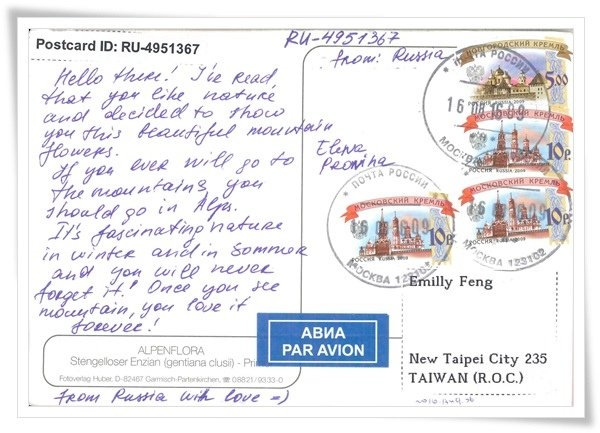 Postcard ID: RU-4951367
RU-4951367
from: Russia
Hello there! I've read
that you like nature
and decided to show
you this beautiful mountain
flowers.
If you ever will go to
the mountains, you
should go in Alps.
It's fascinating nature
in winter and in sommer
and you will never
forget it! Once you see
mountain, you love it
forever!
Elena
НОВГОРОДСКИЙ КРЕМЛЬ
5.00
РОССИЯ RUSSIA 2009
ПОЧТА РОССИИ
16 08 16 09
МОСКВА
МОСКОВСКИЙ КРЕМЛЬ
10р.
РОССИЯ RUSSIA·2009
МОСКОВСКИЙ КРЕМЛЬ
10р.
МОСКВА 123102
ПОЧТА РОССИИ
МОСКОВСКИЙ КРЕМЛЬ
10р
РОССИЯ RUSSIA·2009
МОСКВА
Emilly Feng
New Taipei City 235
TAIWAN (R.O.C.)
АВИА
PAR AVION
ALPENFLORA
Stengelloser Enzian (gentiana clusii) -
Fotoverlag Huber, D-82467 Garmisch-Partenkirchen, ☏ 08821/9333-0
From Russia with love =)